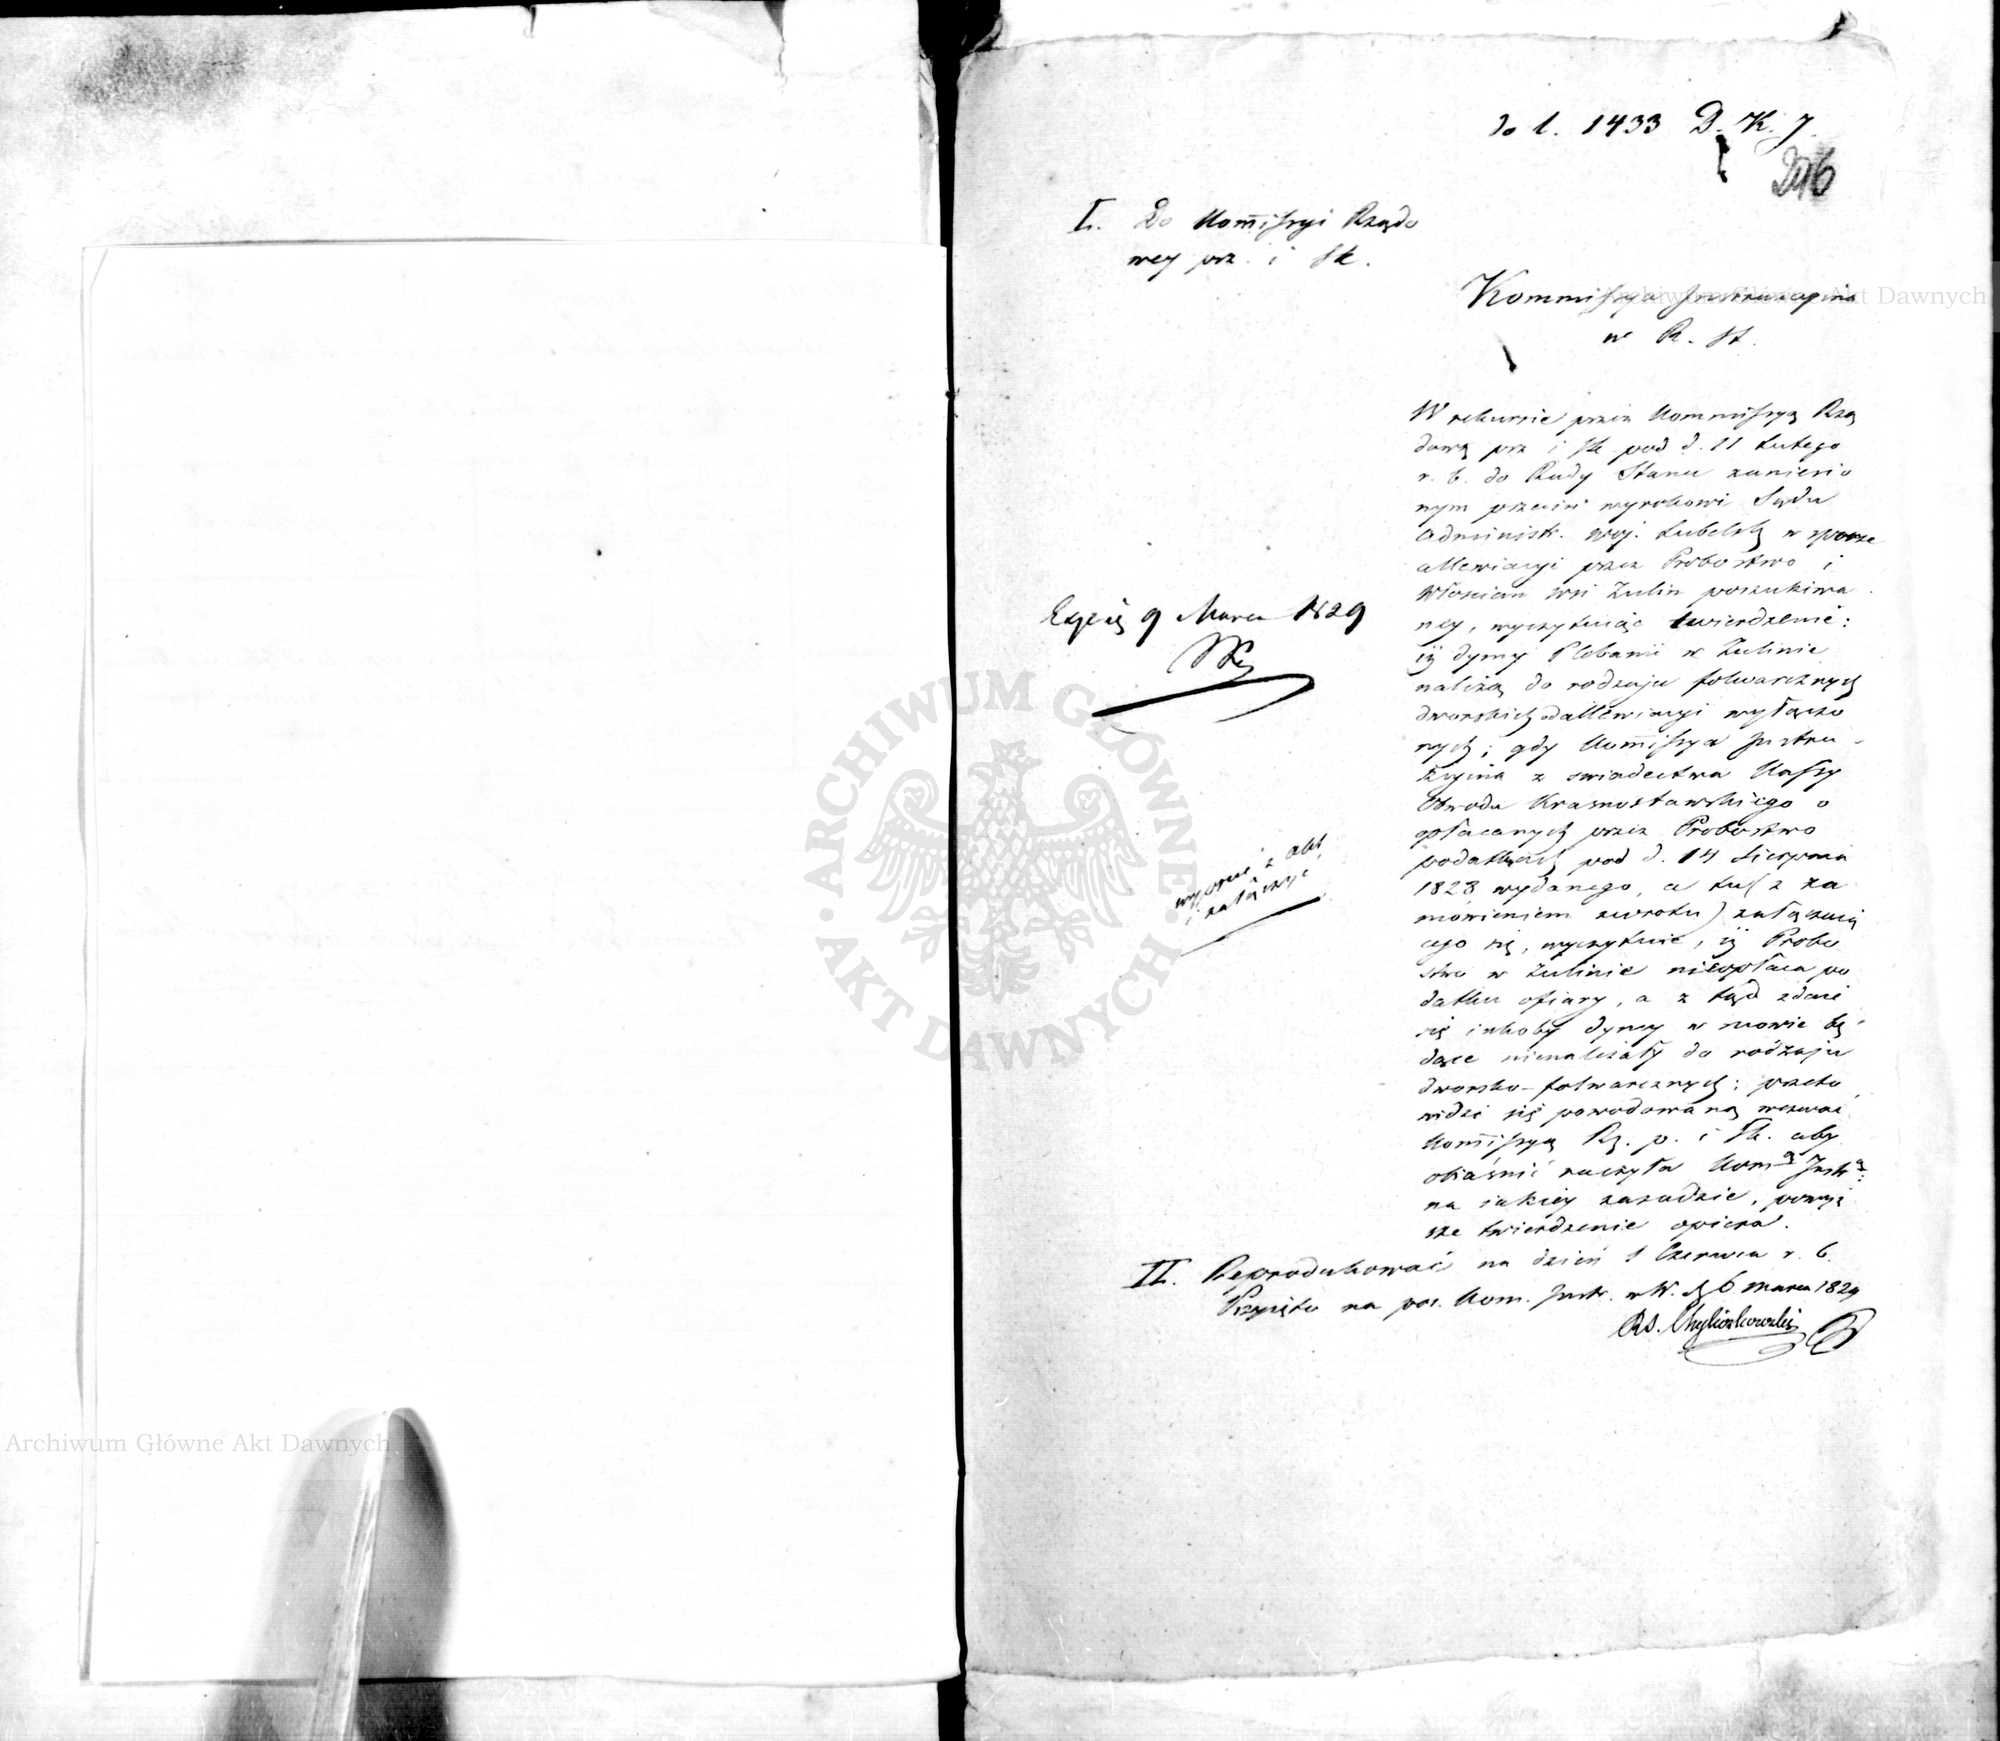 do l. 1433 D. K. J.
296
I. Do Kommissyi Rządo
wey prz. i Sk.
Kommissya Instrukcyina
w R. St.
W rekursie przez Kommissyą Rzą
dową prz i Sk pod d. 11 Lutego
r. b. do Rady Stanu zaniesio
nym przeciw wyrokowi Sądu
Administr. Woj. Lubelsk w sporze
allewiacyi przez Probostwo i
Włościan wsi Żulin poszukiwa
ney, wyczytując twierdzenie:
iż dymy Plebanii w Żulinie
należą do rodzaju folwarcznych
dworskich od allewiacyi wyłączo
nych; gdy Kommissya Instru-
kcyina z swiadectwa Kassy
Obwodu Krasnostawskiego o
opłacanych przez Probostwo
podatkach pod d. 14 Sierpnia
1828 wydanego, a tu (z za
mówieniem zwrotu) załączaią
cego się, wyczytuie, iż Probo
stwo w Żulinie nieopłaca po
datku ofiary, a z tąd zdaie
się iakoby dymy w mowie bę
dące nienależały do rodzaju
dworsko-folwarcznych; przeto
widzi się powodowaną wezwać
Kommissyą Rz. p. i Sk. aby
obiaśnić raczyła Komą Instrą:
na iakiey zasadzie, powyż
sze twierdzenie opiera.
Exped 9 Marca 1829
wypruć z akt
i załączyć
II. Reprodukować na dzień 1 Czerwca r. b.
Przyięto na pos. Kom. Instr. w W. d. 6 Marca 1829
RS. Chyliczkowski
Archiwum Główne Akt Dawnych
Archiwum Główne Akt Dawnych
ARCHIWUM GŁÓWNE
AKT DAWNYCH